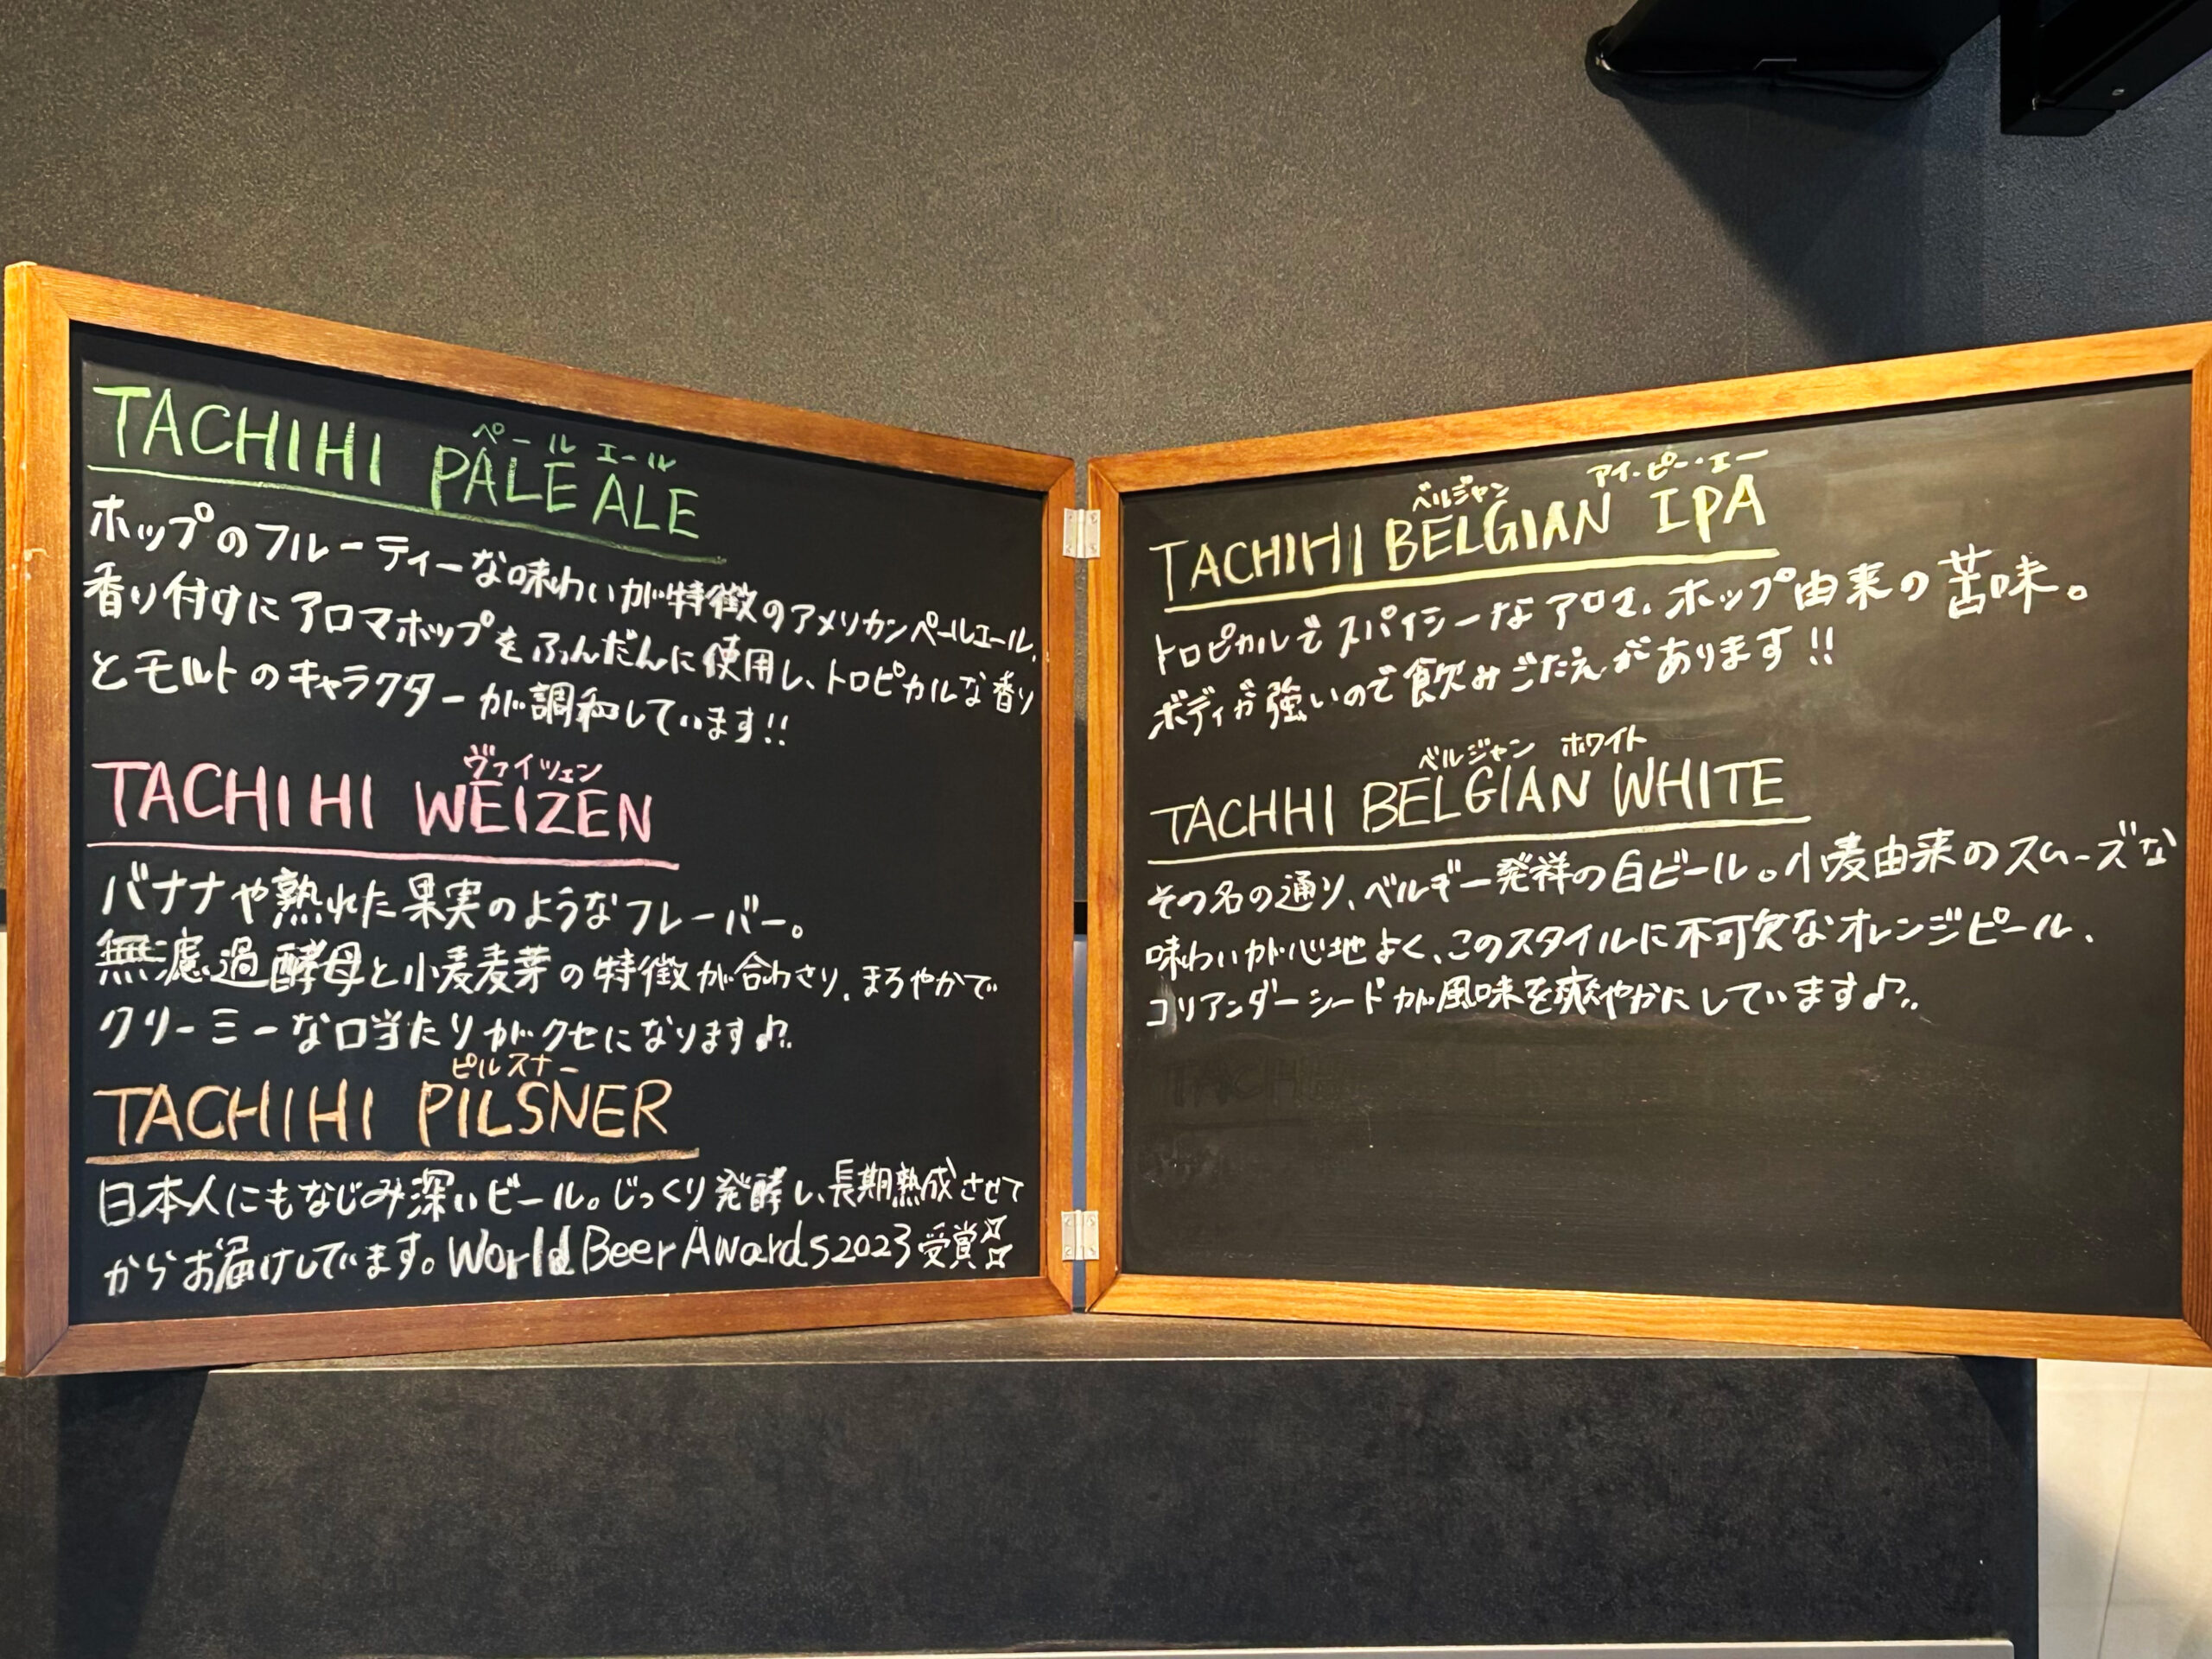 ペール エール
TACHIHI PALE ALE
ホップのフルーティーな味わいが特徴のアメリカンペールエール。
香り付けにアロマホップをふんだんに使用し、トロピカルな香り
とモルトのキャラクターが調和しています!!
ヴァイツェン
TACHIHI WEIZEN
バナナや熟れた果実のようなフレーバー。
無濾過酵母と小麦麦芽の特徴が合わさり、まろやかで
クリーミーな口当たりがクセになります♪
ピルスナー
TACHIHI PILSNER
日本人にもなじみ深いビール。じっくり発酵し、長期熟成させて
からお届けしています。World Beer Awards 2023 受賞☆☆
ベルジャン アイ・ピー・エー
TACHIHI BELGIAN IPA
トロピカルでスパイシーなアロマ、ホップ由来の苦味。
ボディが強いので飲みごたえがあります!!
ベルジャン ホワイト
TACHHI BELGIAN WHITE
その名の通り、ベルギー発祥の白ビール。小麦由来のスムーズな
味わいが心地よく、このスタイルに不可欠なオレンジピール、
コリアンダーシードが風味を爽やかにしています♪